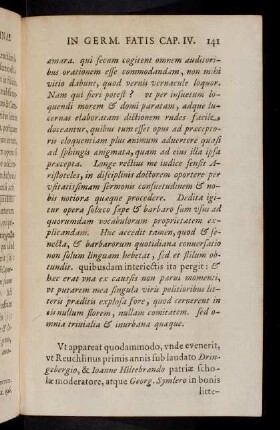 IN GERM. FATIS CAP. IV. 141
amara. qui secum cogitent omnem auditori-
bus orationem esse commodandam, non mihi
vitio dabunt, quod vernis vernacule loquor.
Nam qui fieri potest? vt per insuetum lo-
quendi morem & domi paratam, adque lu-
cernas elaboratam dictionem rudes facile
doceantur, quibus tum esset opus ad præcepto-
ris eloquentiam plus animum aduertere quasi
ad sphingis ænigmata, quam ad eius illa ipsa
præcepta. Longe rectius me iudice sensit A-
ristoteles, in disciplinis doctorem oportere per
vsitatissimam sermonis consuetudinem & no-
bis notiora quæque procedere. Dedita igi-
tur opera solœco sæpe & barbaro sum vsus ad
quorumdam vocabulorum proprietatem ex-
plicandam. Huc accedit tamen, quod & se-
necta, & barbarorum quotidiana conuersatio
non solum linguam hebetat, sed et stilum ob-
tundit. quibusdam interiectis ita pergit: &
hæc erat vna ex causis non parui momenti,
vt putarem mea singula viris politioribus lit-
teris præditis explosa fore, quod cernerent in
eis nullum florem, nullam comitatem. sed o-
mnia triuialia & inurbana quæque.
Vt appareat quodammodo, vnde evenerit,
vt Reuchlinus primis annis sub laudato Drin-
gebergio, & Ioanne Hiltebrando patriæ scho-
læ moderatore, atque Georg. Symlero in bonis
litte-